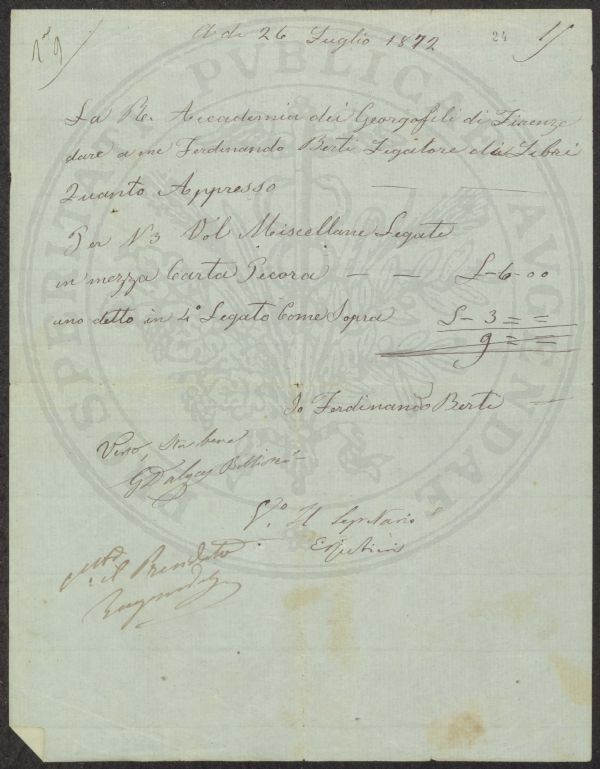 A dì 26 Luglio 1872
24
La R. Accademia dei Georgofili di Firenze
dare a me Ferdinando Berti Legatore di Libri
Quanto Appresso
Per N 3 Vol Miscellane Legate
in mezza Carta Pecora — — L - 6 - 00
uno detto in 4° Legato Come Sopra L - 3 = =
9 = =
Io Ferdinando Berti
Visto, sta bene
Vo Il Segretario
PROSPERITATI PVBLICAE AVGENDAE